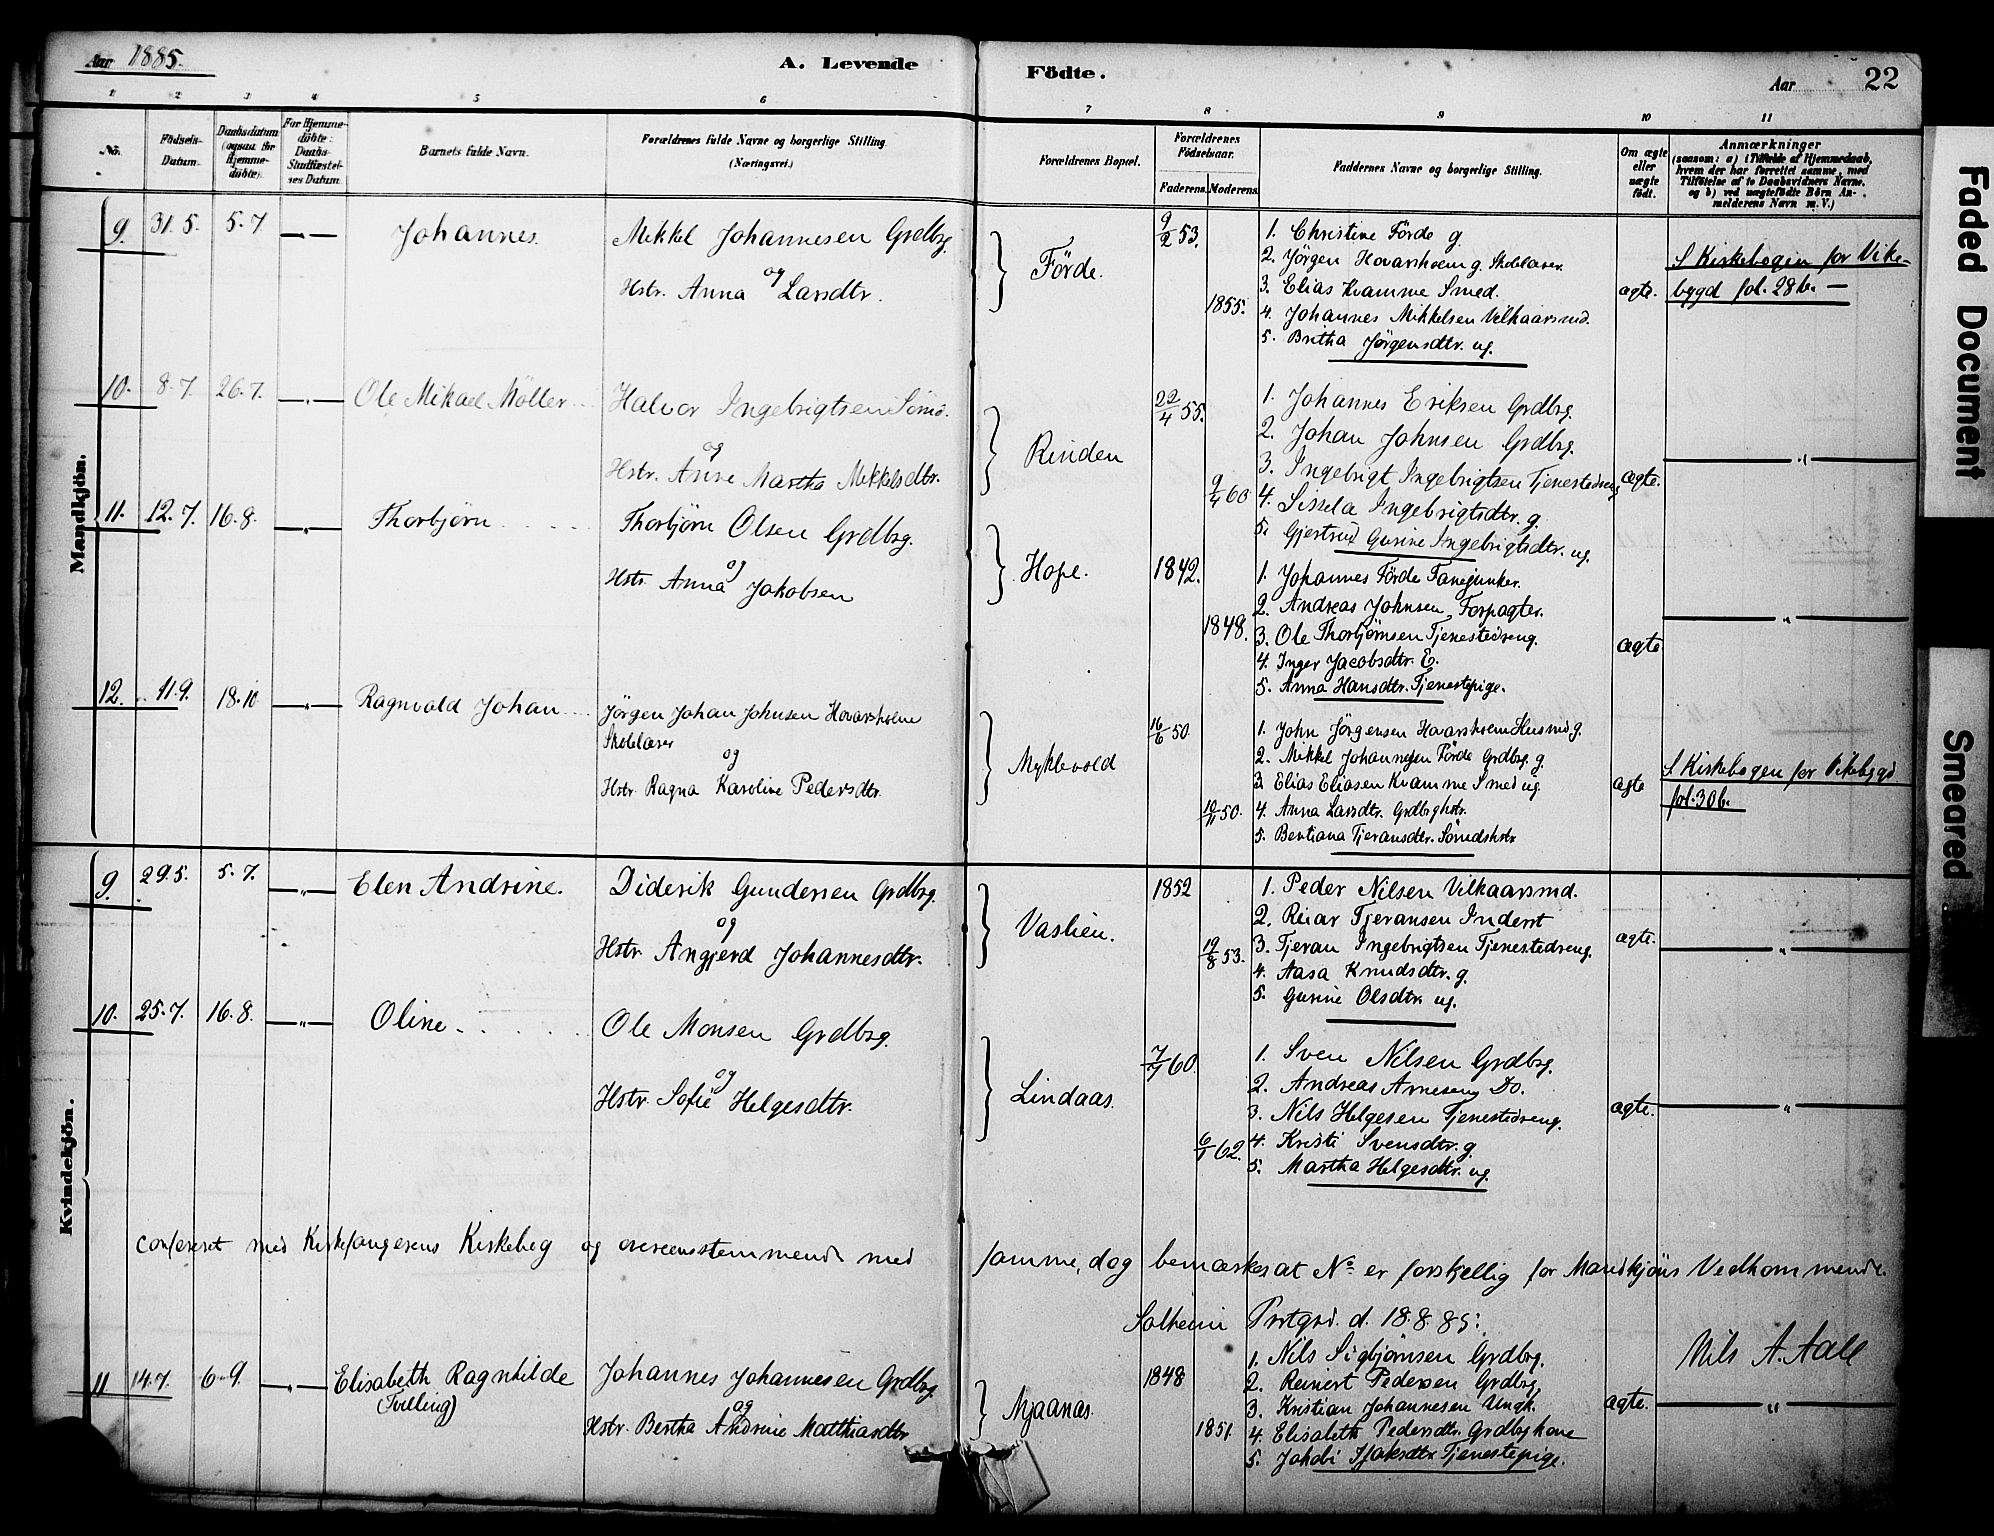 Aar 1885.
A. Levende Födte.
Aar 22
1 2 3 4 5 6 7 8 9 10 11
No.
Födsels-Datum.
Daabsdatum (ogsaa for Hjemme-döbte).
For Hjemme-döbte: Daabs-Stadfæstel-ses Datum.
Barnets fulde Navn.
Forældrenes fulde Navne og borgerlige Stilling. (Næringsvei.)
Forældrenes Bopæl.
Forældrenes Födselsaar.
Faderens. Moderens.
Faddernes Navne og borgerlige Stilling.
Om ægte eller uægte födt.
Anmærkninger
(saasom: a) i Tilfælde af Hjemmedaab, hvem der har forrettet samme, med Tilföielse af to Daabsvidners Navne, og b) ved uægtefödte Börn An-melderens Navn m. V.)
Mandkjön.
9. 31.5. 5.7 —"— Johannes.
Mikkel Johannesen Grdbrg.
og
Hstr. Anna Larsdtr.
Förde.
9/2 53.
1855.
1. Christine Förde g.
2. Jörgen Hovarsholm g. Skolelærer.
3. Elias Kvamme Smed.
4. Johannes Mikkelsen Vilkaarsmd.
5. Britha Jörgensdtr. ug.
ægte.
S. Kirkebogen for Vike-
bygd fol. 28 b. —
10. 8.7. 26.7. —"— Ole Mikael Möller
Halvor Ingebrigtsen Smd.
og
Hstr. Anne Martha Mikkelsdtr.
Rinden
22/4 55.
9/4 60
1. Johannes Eriksen Grdbrg.
2. Johan Johnsen Grdbrg.
3. Ingebrigt Ingebrigtsen Tjenestedreng
4. Sissela Ingebrigtsdtr. g.
5. Gjertrud Gurine Ingebrigtsdtr. ug.
ægte.
11. 12.7. 16.8. —"— Thorbjörn
Thorbjörn Olsen Grdbrg.
og
Hstr. Anna Jakobsen
Hope.
1842.
1848.
1. Johannes Förde Fanejunker.
2. Andreas Johnsen, Forpagter.
3. Ole Thorbjörnsen Tjenestedreng.
4. Inger Jacobsdtr. E.
5. Anna Hansdtr. Tjenestepige.
ægte.
12. 11.9. 18.10 —"— Ragnvald Johan
Jörgen Johan Johnsen Hovarsholm
Skolelærer
og
Hstr. Ragna Karoline Pedersdtr.
Myklevold
16/6 50
10/11 50.
1. John Jörgensen Hovarsholm Husmd g.
2. Mikkel Johannesen Förde Grdbrg. g.
3. Elias Eliasen Kvamme Smed ug.
4. Anna Larsdtr. Grdbrg hstr.
5. Bertiana Tjeransdtr. Smedshstr
ægte
S. Kirkebogen for Vikebygd
fol. 30 b.
Kvindekjön.
9. 29.5. 5.7. —"— Elen Andrine.
Diderik Gundersen Grdbrg.
og
Hstr. Angjerd Johannesdtr.
Vaslien.
1852
19/8 53.
1. Peder Nilsen Vilkaarsmd.
2. Reiar Tjeransen Inderst
3. Tjeran Ingebrigtsen Tjenestedreng.
4. Aasa Knudsdtr. g.
5. Gurine Olsdtr. ug.
ægte.
10. 25.7. 16.8. —"— Oline
Ole Monsen Grdbrg.
og
Hstr. Sofie Helgesdtr.
Lindaas.
60.
62.
1. Sven Nilsen Grdbrg.
2. Andreas Arnesen Do.
3. Nils Helgesen Tjenestedreng.
4. Kristi Svensdtr. g.
5. Martha Helgesdtr. ug.
ægte.
Confereret med Kirkesangerens Kirkebog og overensstemmende med samme, dog bemærkes at No er forskjellig for Mandkjöns Vedkommende.
Solheim Prstgrd. d. 18.8.85:
Nils A. Aall
11 14.7. 6.9. —"— Elisabeth Ragnhilde
(Tvilling)
Johannes Johannesen Grdbrg
og
Hstr. Bertha Andrine Matthiasdtr
Mjaanæs.
1848
1851.
1. Nils Sigbjörnsen Grdbrg.
2. Reinert Pedersen Grdbrg.
3. Kristian Johannesen Ungk.
4. Elisabeth Pedersdtr. Grdbrg kone
5. Jakobi Isaksdtr Tjenestepige.
ægte.
Faded Document
Smeared